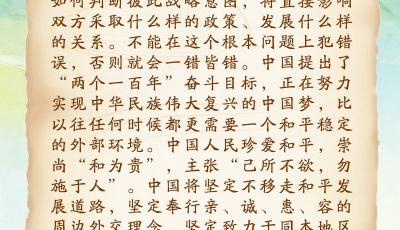 如何判断彼此战略意图，将直接影响
双方采取什么样的政策、发展什么样
的关系。不能在这个根本问题上犯错
误，否则就会一错皆错。中国提出了
“两个一百年”奋斗目标，正在努力
实现中华民族伟大复兴的中国梦，比
以往任何时候都更需要一个和平稳定
的外部环境。中国人民珍爱和平，崇
尚“和为贵”，主张“己所不欲，勿
施于人”。中国将坚定不移走和平发
展道路，坚定奉行亲、诚、惠、容的
周边外交理念，坚定致力于同本地区